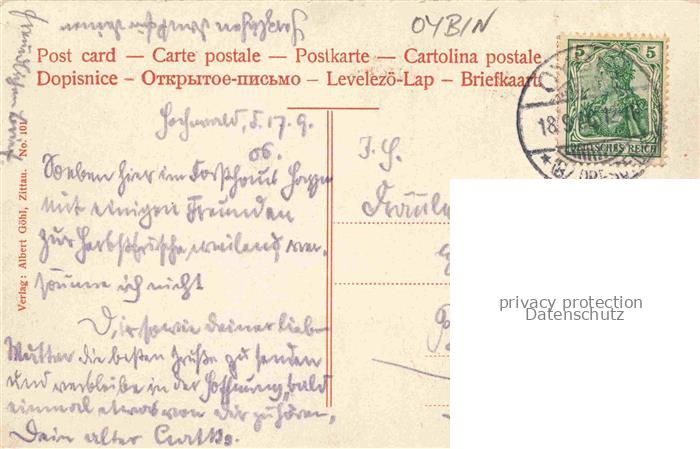 OYBIN
Post card — Carte postale — Postkarte — Cartolina postale
Dopisnice – Открытое-письмо – Levelezö-Lap – Briefkaart
5 5
DEUTSCHES REICH
18.9.
Verlag: Albert Göhl, Zittau. No. 101
Hochwald, d. 17. 9.
06.
Soeben hier im Forsthaus
mit einigen Freunden
zur Herbstfrische weilend ver-
säume ich nicht
Dir sowie deiner lieben
Mutter die besten Grüße zu senden
und verbleibe in der Hoffnung, bald
einmal etwas von Dir zu hören,
Dein alter
Fräulein
privacy protection
Datenschutz